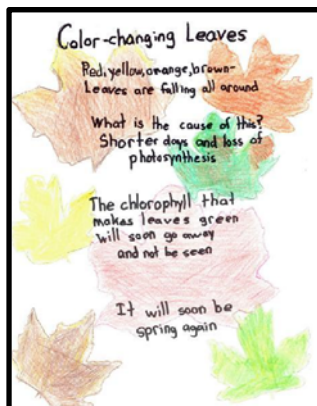 Color-changing Leaves
Red, yellow, orange, brown-
Leaves are falling all around
What is the cause of this?
Shorter days and loss of
photosynthesis
The chlorophyll that
makes leaves green
will soon go away
and not be seen
It will soon be
spring again